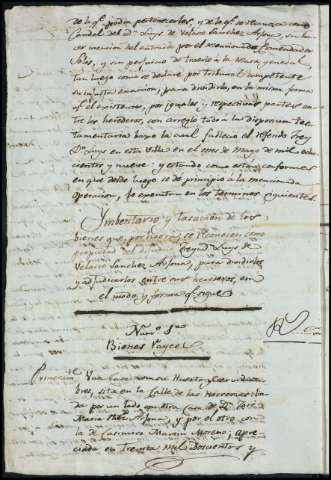 de lo qe. podia pertenecerles, y de lo qe. se
Caudal del Dn. Luys de Velasco Sanchez Arjona, sin ha
cer mencion del estimado por el mencionado Comendador
Solis, y sin perjuicio de traerlo à la Masa general,
tan luego como se declare por Tribunal competente
su injusta evacion, para dividirlo, en la misma forma
qe. el existente, por iguales, y respectivas partes en
tre los herederos, con arreglo todo a las disposicion Tes
tamentaria baxo la cual fallecio el referido Frey
Dn. Luys en esta Villa en el mes de Mayo de mil ocho
cientos y nueve: y estando como estan conformes
en que desde luego se de principio à la mencionada
operacion, lo executan en los terminos siguientes
Imbentario y tasacion de los
bienes que por ahora se reconocen como
propios del Frey Dn. Luys de
Velasco Sanchez Arjona, para dividirlos
y adjudicarlos entre sus herederos, en
el modo y forma qe. sigue
Numo. 1o.
Bienes Rayces
Primeramte. Una Casa con su Huerto y
bres, sita en la Calle de las Herrerias
da por un lado con otra Casa de Dn. José
Maria Shez. Arjona, y por el otro con la
de Casimiro Martin Moreno; apre
ciada en Treinta mil Doscientos y